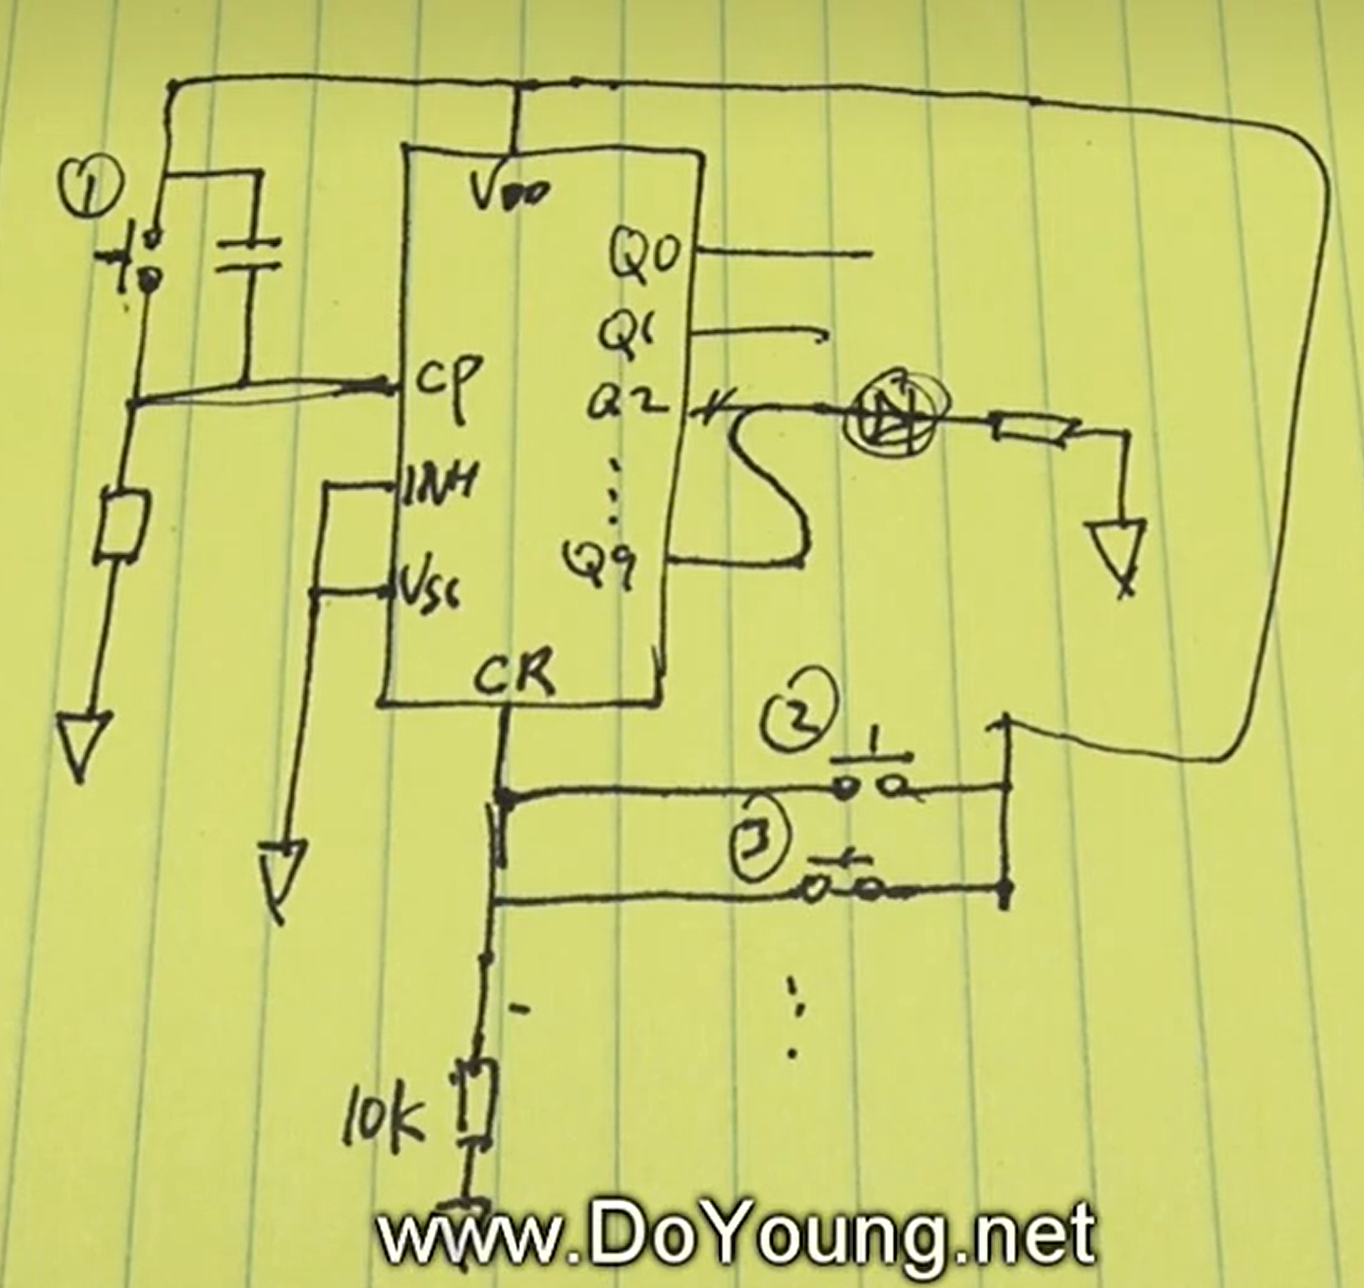 ①
VDD
Q0
Q1
CP
Q2
INH
Q9
VSS
CR
②
③
10k
www.DoYoung.net